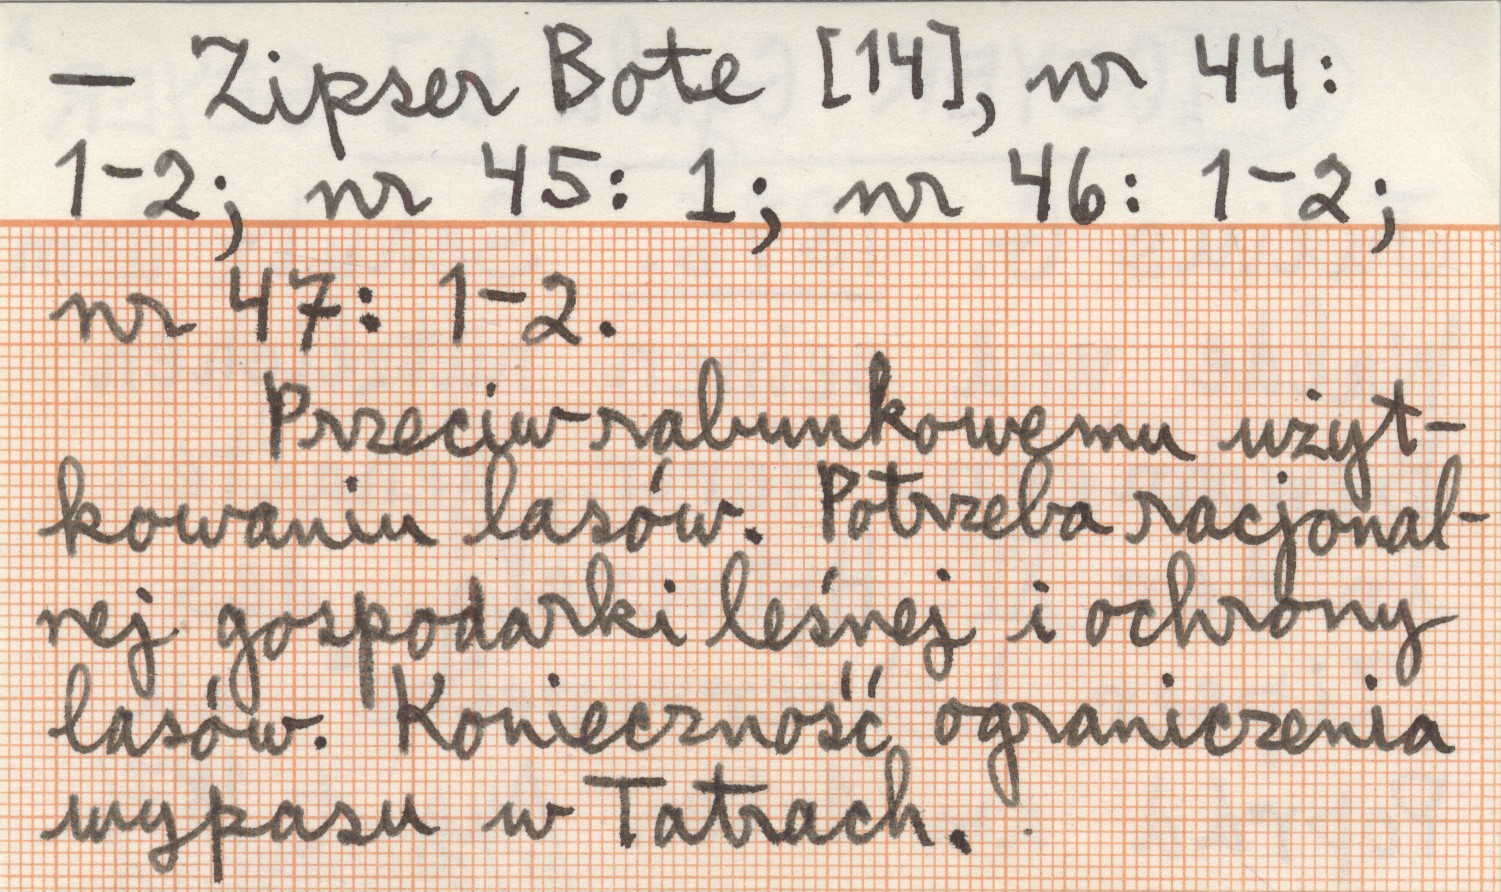 — Zipser Bote [14], nr 44:
1-2; nr 45: 1; nr 46: 1-2;
nr 47: 1-2.
Przeciw rabunkowemu użyt-
kowaniu lasów. Potrzeba racjonal-
nej gospodarki leśnej i ochrony
lasów. Konieczność ograniczenia
wypasu w Tatrach.